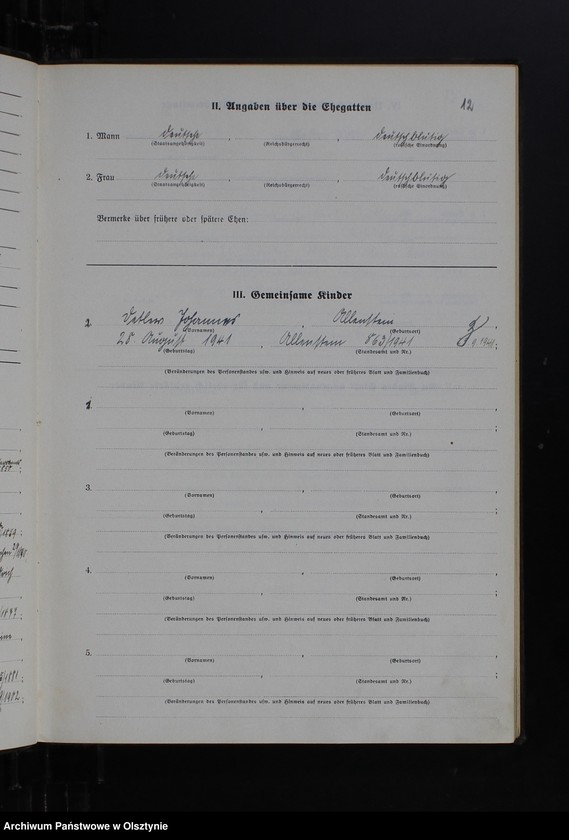 II. Angaben über die Ehegatten
12
1. Mann deutsche , , deutschblütig
(Staatsangehörigkeit) (Reichsbürgerrecht) (rassische Einordnung)
2. Frau deutsche , , deutschblütig
(Staatsangehörigkeit) (Reichsbürgerrecht) (rassische Einordnung)
Vermerke über frühere oder spätere Ehen:
III. Gemeinsame Kinder
Detlev Johannes , Allenstein
(Vornamen) (Geburtsort)
28. August 1941 , Allenstein 863/1941 ;
(Geburtstag) (Standesamt und Nr.)
(Veränderungen des Personenstandes usw. und Hinweis auf neues oder früheres Blatt und Familienbuch)
(Vornamen) (Geburtsort)
(Geburtstag) (Standesamt und Nr.)
(Veränderungen des Personenstandes usw. und Hinweis auf neues oder früheres Blatt und Familienbuch)
3.
(Vornamen) (Geburtsort)
(Geburtstag) (Standesamt und Nr.)
(Veränderungen des Personenstandes usw. und Hinweis auf neues oder früheres Blatt und Familienbuch)
4.
(Vornamen) (Geburtsort)
(Geburtstag) (Standesamt und Nr.)
(Veränderungen des Personenstandes usw. und Hinweis auf neues oder früheres Blatt und Familienbuch)
5.
(Vornamen) (Geburtsort)
(Geburtstag) (Standesamt und Nr.)
(Veränderungen des Personenstandes usw. und Hinweis auf neues oder früheres Blatt und Familienbuch)
Archiwum Państwowe w Olsztynie